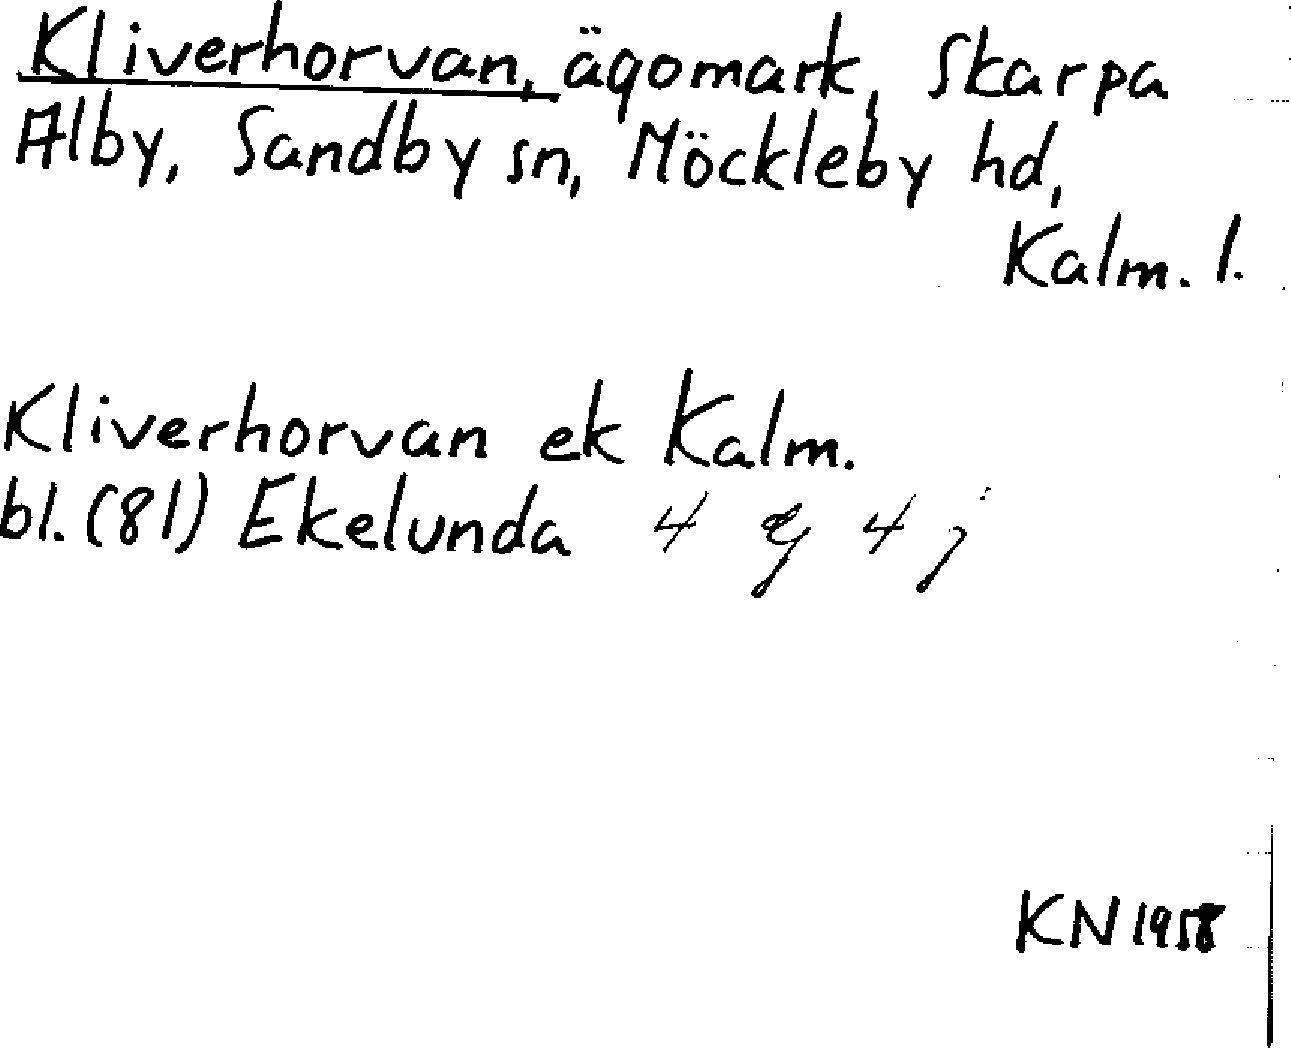 Kliverhorvan, ägomark, Skarpa
Alby, Sandby sn, Möckleby hd,
Kalm. l.
Kliverhorvan ek Kalm.
bl. (81) Ekelunda 4 g 4 j
KN 1958